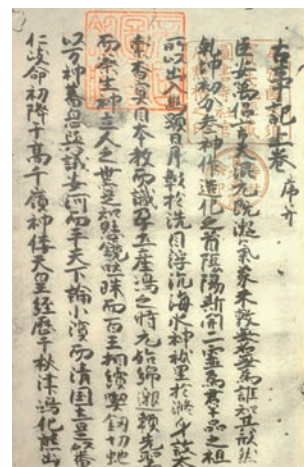 古事記上卷 序并
臣安萬侶言夫混元既凝氣象未效無名無為誰知其形然
乾坤初分參神作造化之首陰陽斯開二靈為群品之祖
所以出入幽顯日月彰於洗目浮沉海水神祇呈於滌身故太
素杳冥因本教而識孕土產嶋之時元始綿邈頼先聖
而察生神立人之世寔知懸鏡吐珠而百王相續喫釼切蛇
以万神蕃息與議安河而平天下論小濱而清国土是以番
仁岐命初降于高千嶺神倭天皇經歷于秋津嶋化熊出